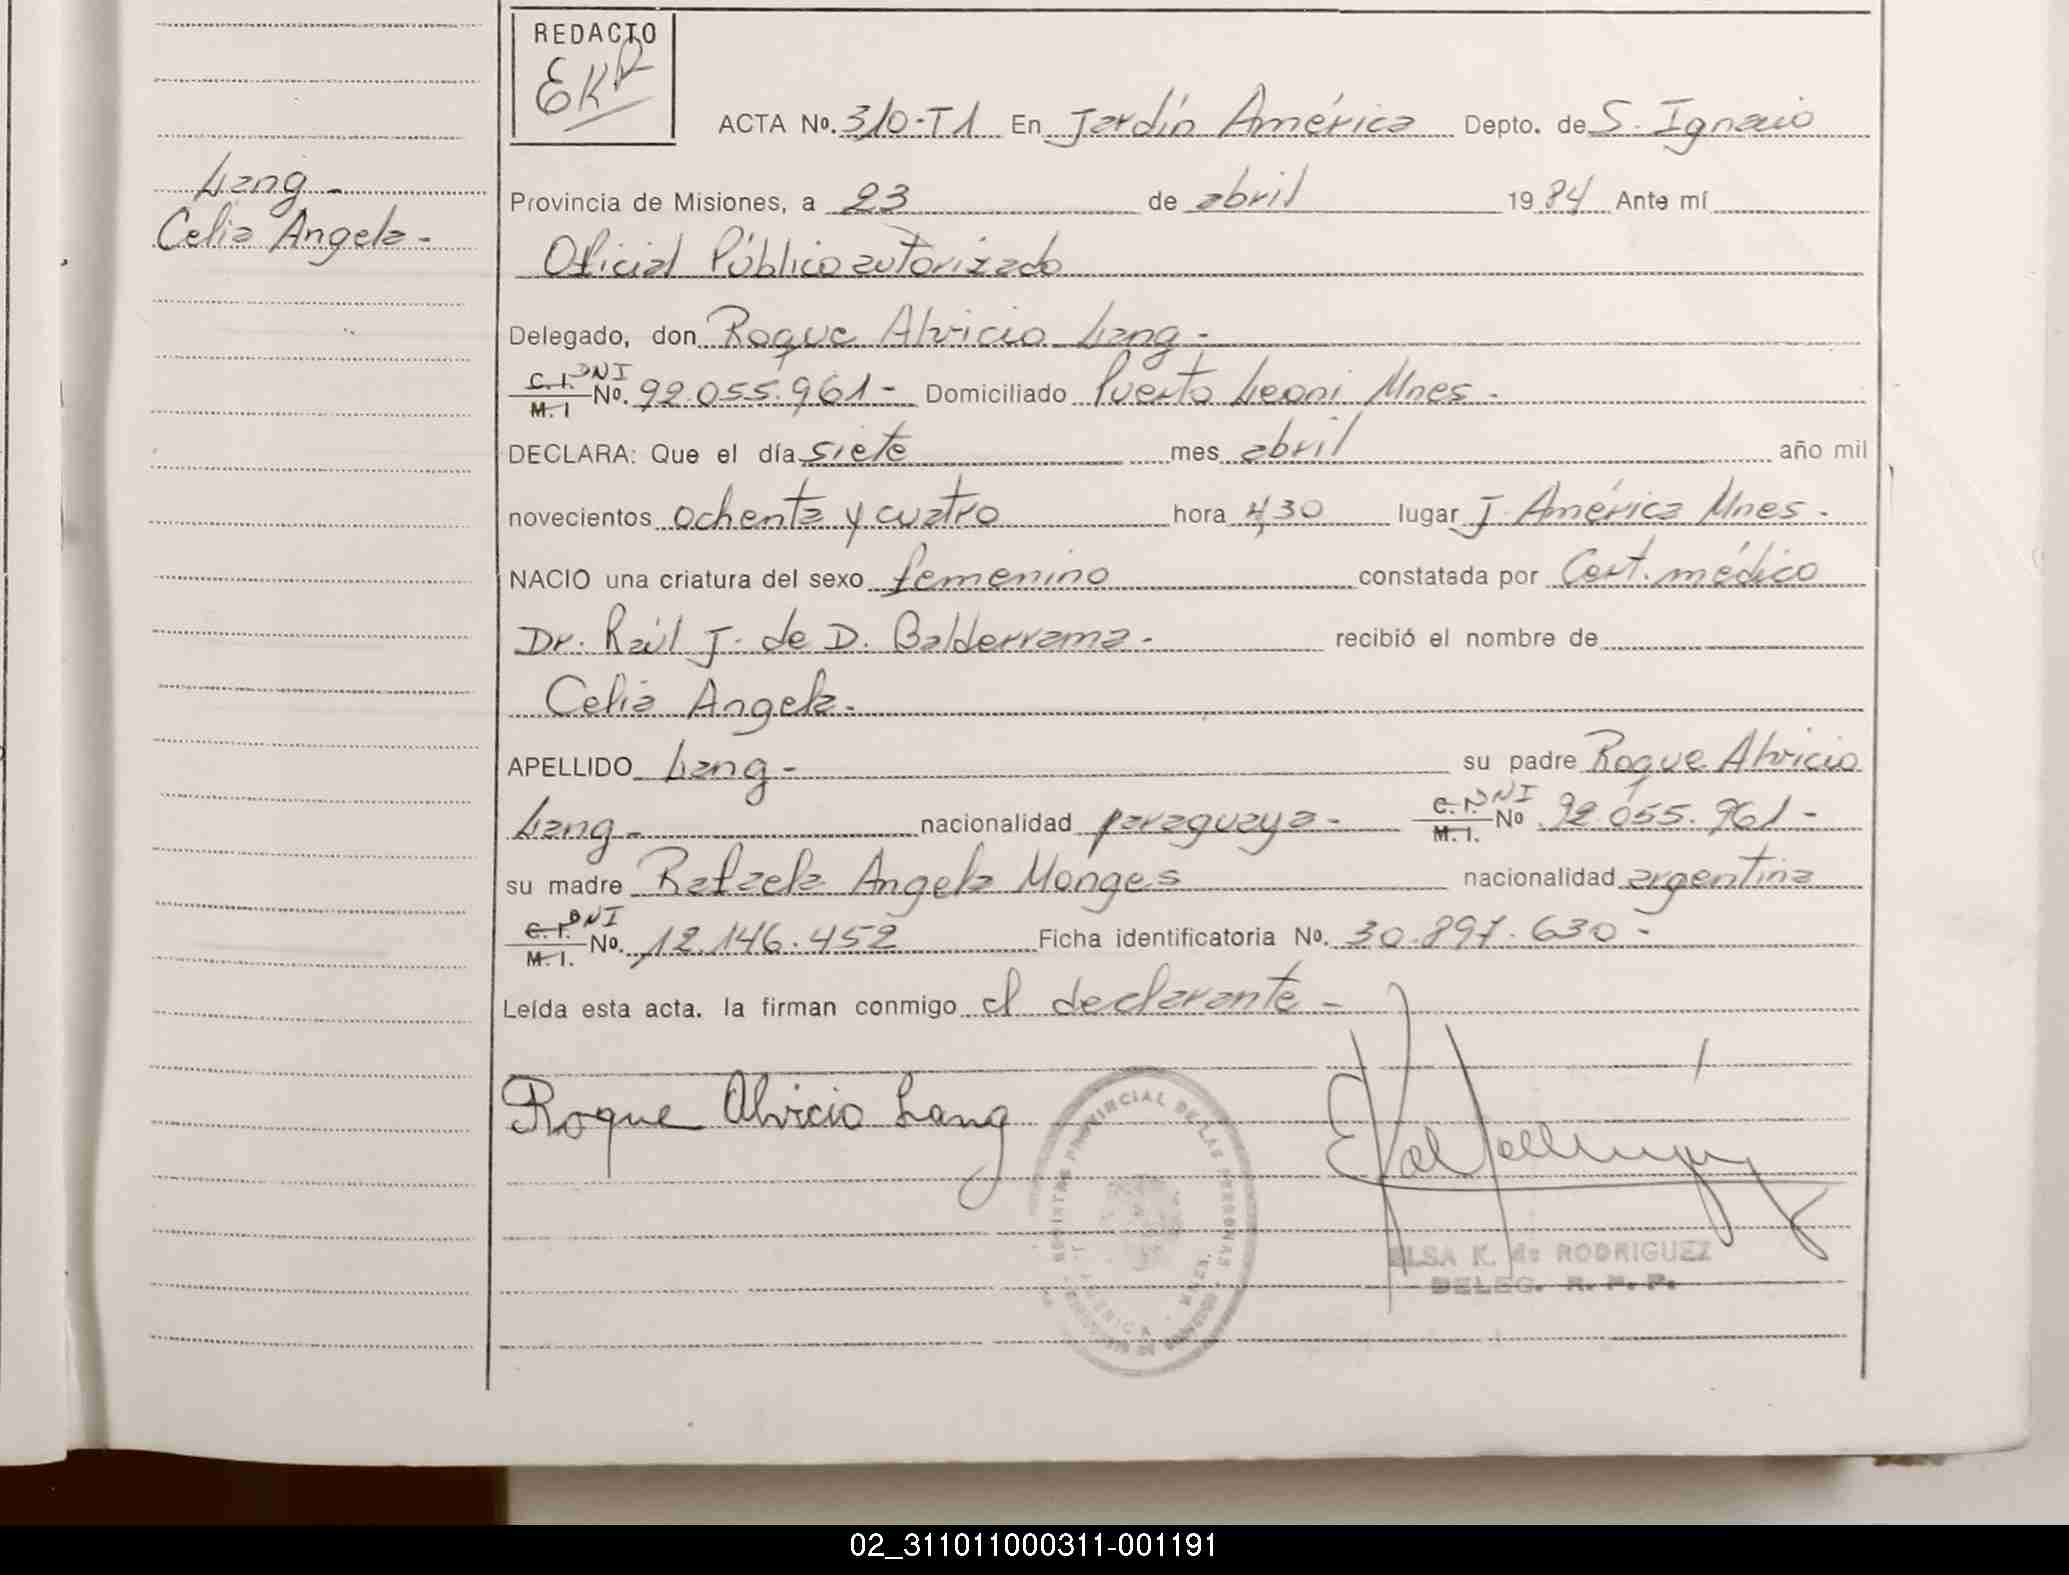 REDACTO
EKR
ACTA No. 310-T1 En Jardín América Depto. de S. Ignacio
Lang -
Celia Angela -
Provincia de Misiones, a 23 de abril 1984 Ante mí
Oficial Público autorizado
Delegado, don Roque Alvicio Lang -
C. I. DNI
M. I No. 92.055.961 - Domiciliado Puerto Leoni Mnes -
DECLARA: Que el día siete mes abril año mil
novecientos ochenta y cuatro hora 4,30 lugar J. América Mnes -
NACIO una criatura del sexo femenino constatada por Cert. médico
Dr. Raúl J. de D. Balderrama - recibió el nombre de
Celia Angela -
APELLIDO Lang - su padre Roque Alvicio
Lang - nacionalidad paraguaya - C. I. DNI M. I. No 92.055.961 -
su madre Rafaela Angela Monges nacionalidad argentina
C. I. DNI
M. I. No. 12.146.452 Ficha identificatoria No. 30.897.630 -
Leída esta acta. la firman conmigo el declarante -
Roque Alvicio Lang
REGISTRO PROVINCIAL DE LAS PERSONAS
ELSA K. de RODRIGUEZ
DELEG. R. P. P.
02_311011000311-001191